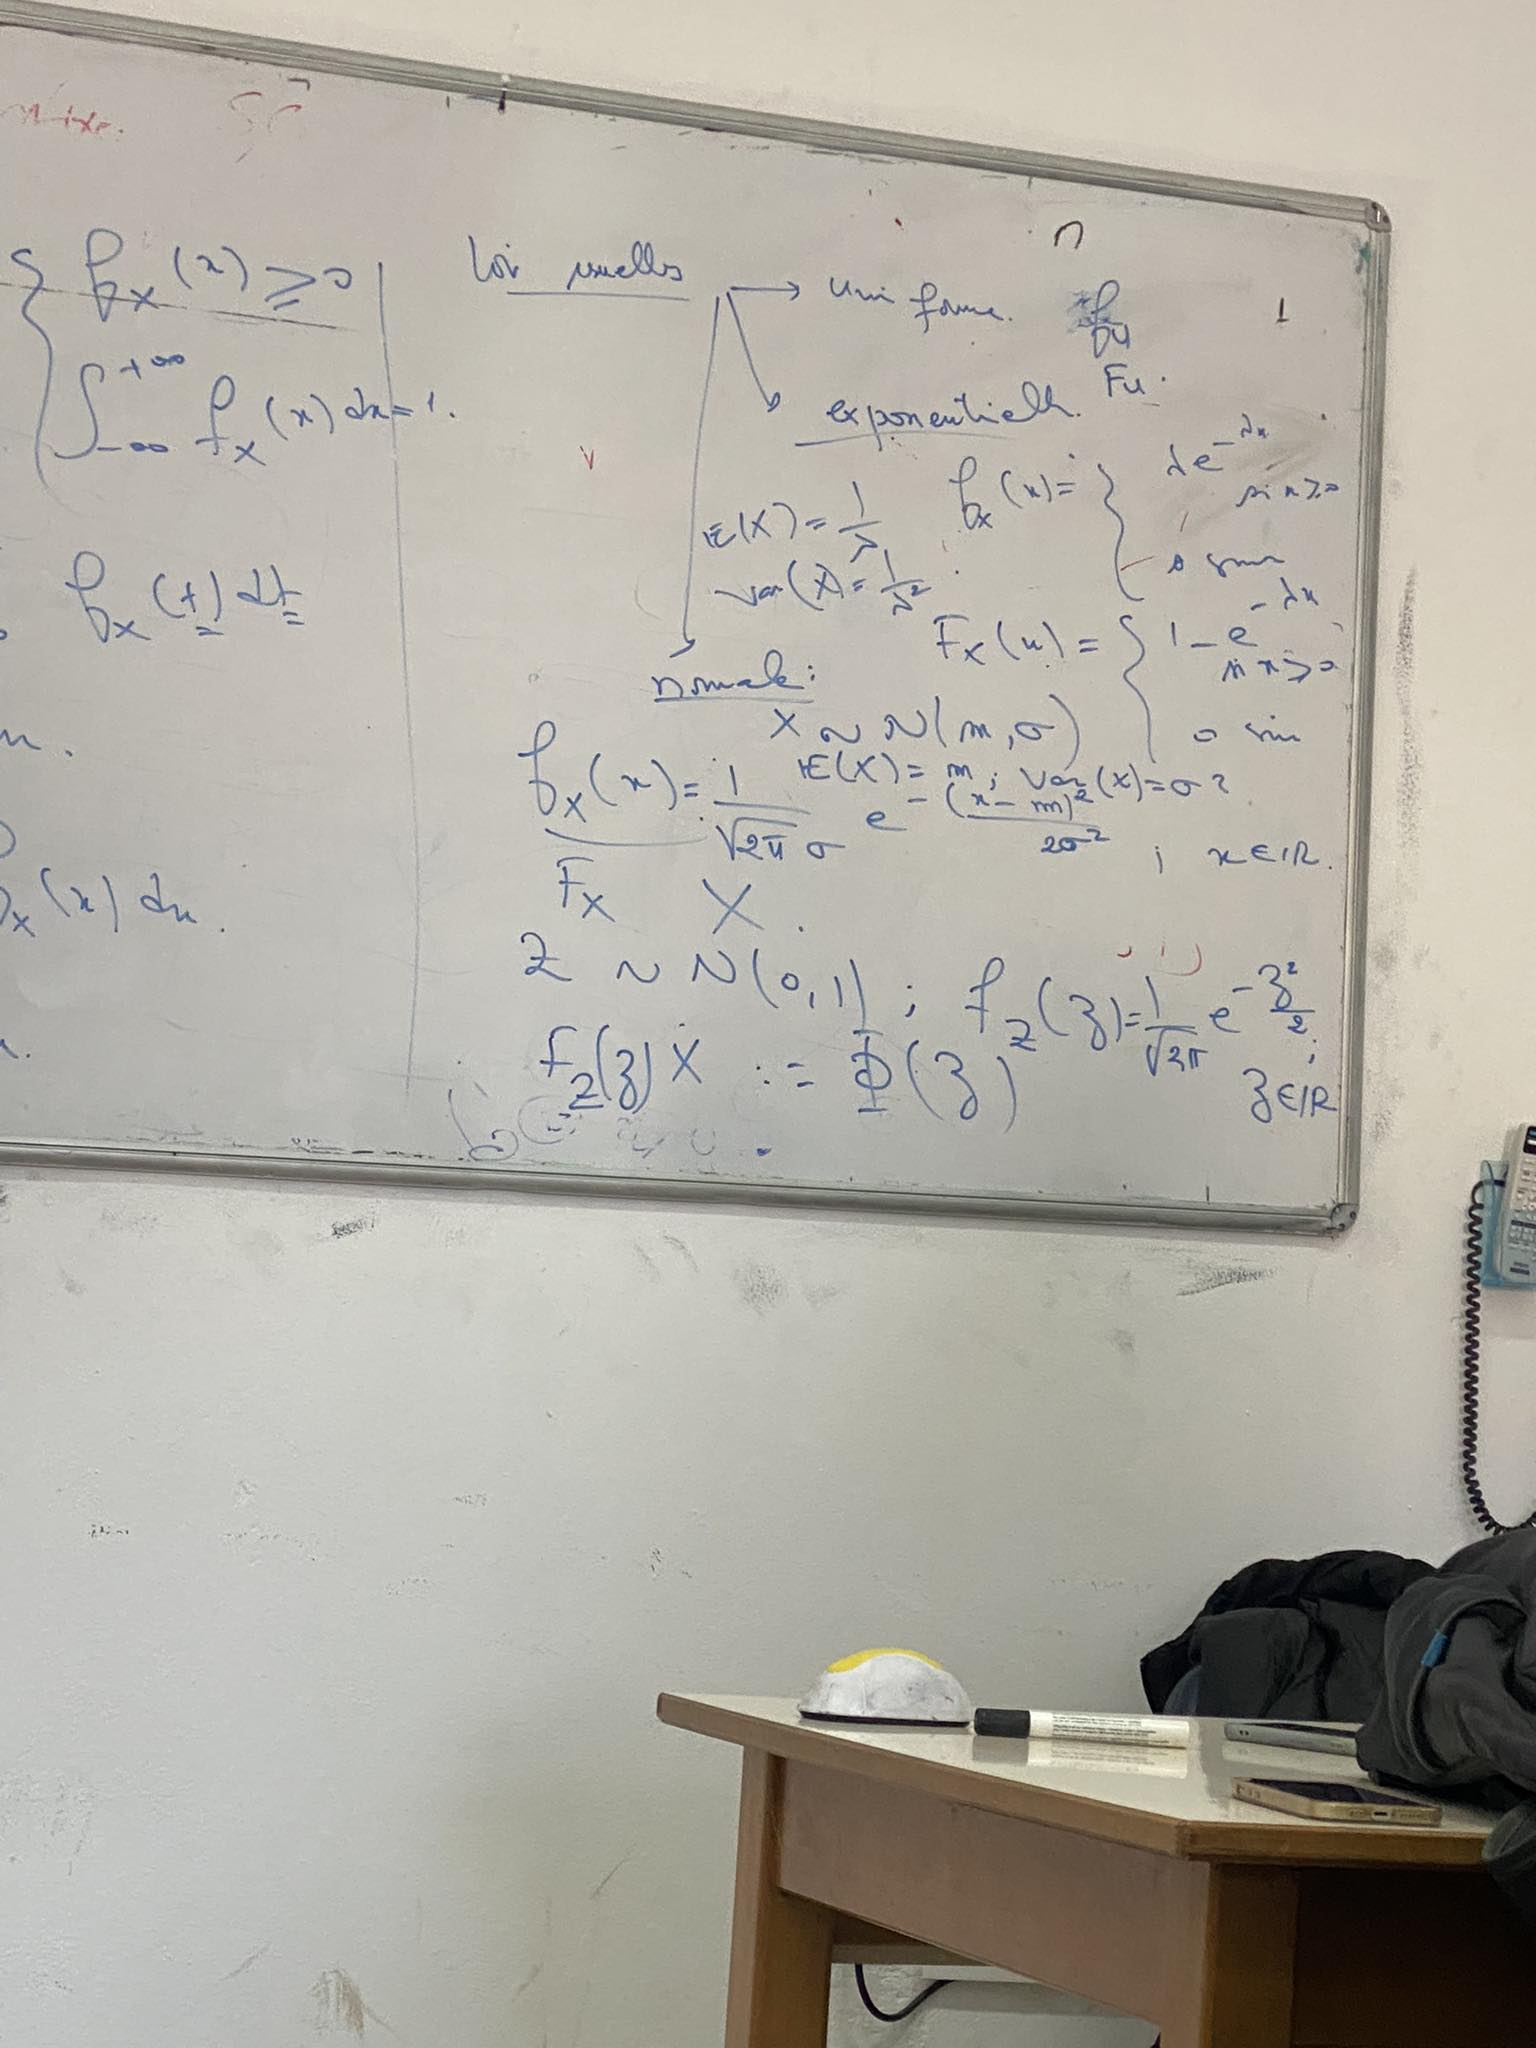 f_X(x) ≥ 0
∫_{-∞}^{+∞} f_X(x) dx = 1.
f_X(t) dt
f_X(x) dx.
loi usuelles → uniforme. f_U
F_U.
exponentielle.
f_X(x) = { λe^{-λx} si x ≥ 0
0 sinon
E(X) = 1/λ
Var(X) = 1/λ².
F_X(x) = { 1 - e^{-λx} si x ≥ 0
0 sinon
normale:
X ~ N(m, σ)
E(X) = m; Var(X) = σ²
f_X(x) = 1/(√2π σ) e^{-(x-m)²/2σ²} ; x ∈ IR.
F_X X.
Z ~ N(0,1) ; f_Z(z) = 1/√2π e^{-z²/2} ;
z ∈ IR
F_Z(z) X := Φ(z)